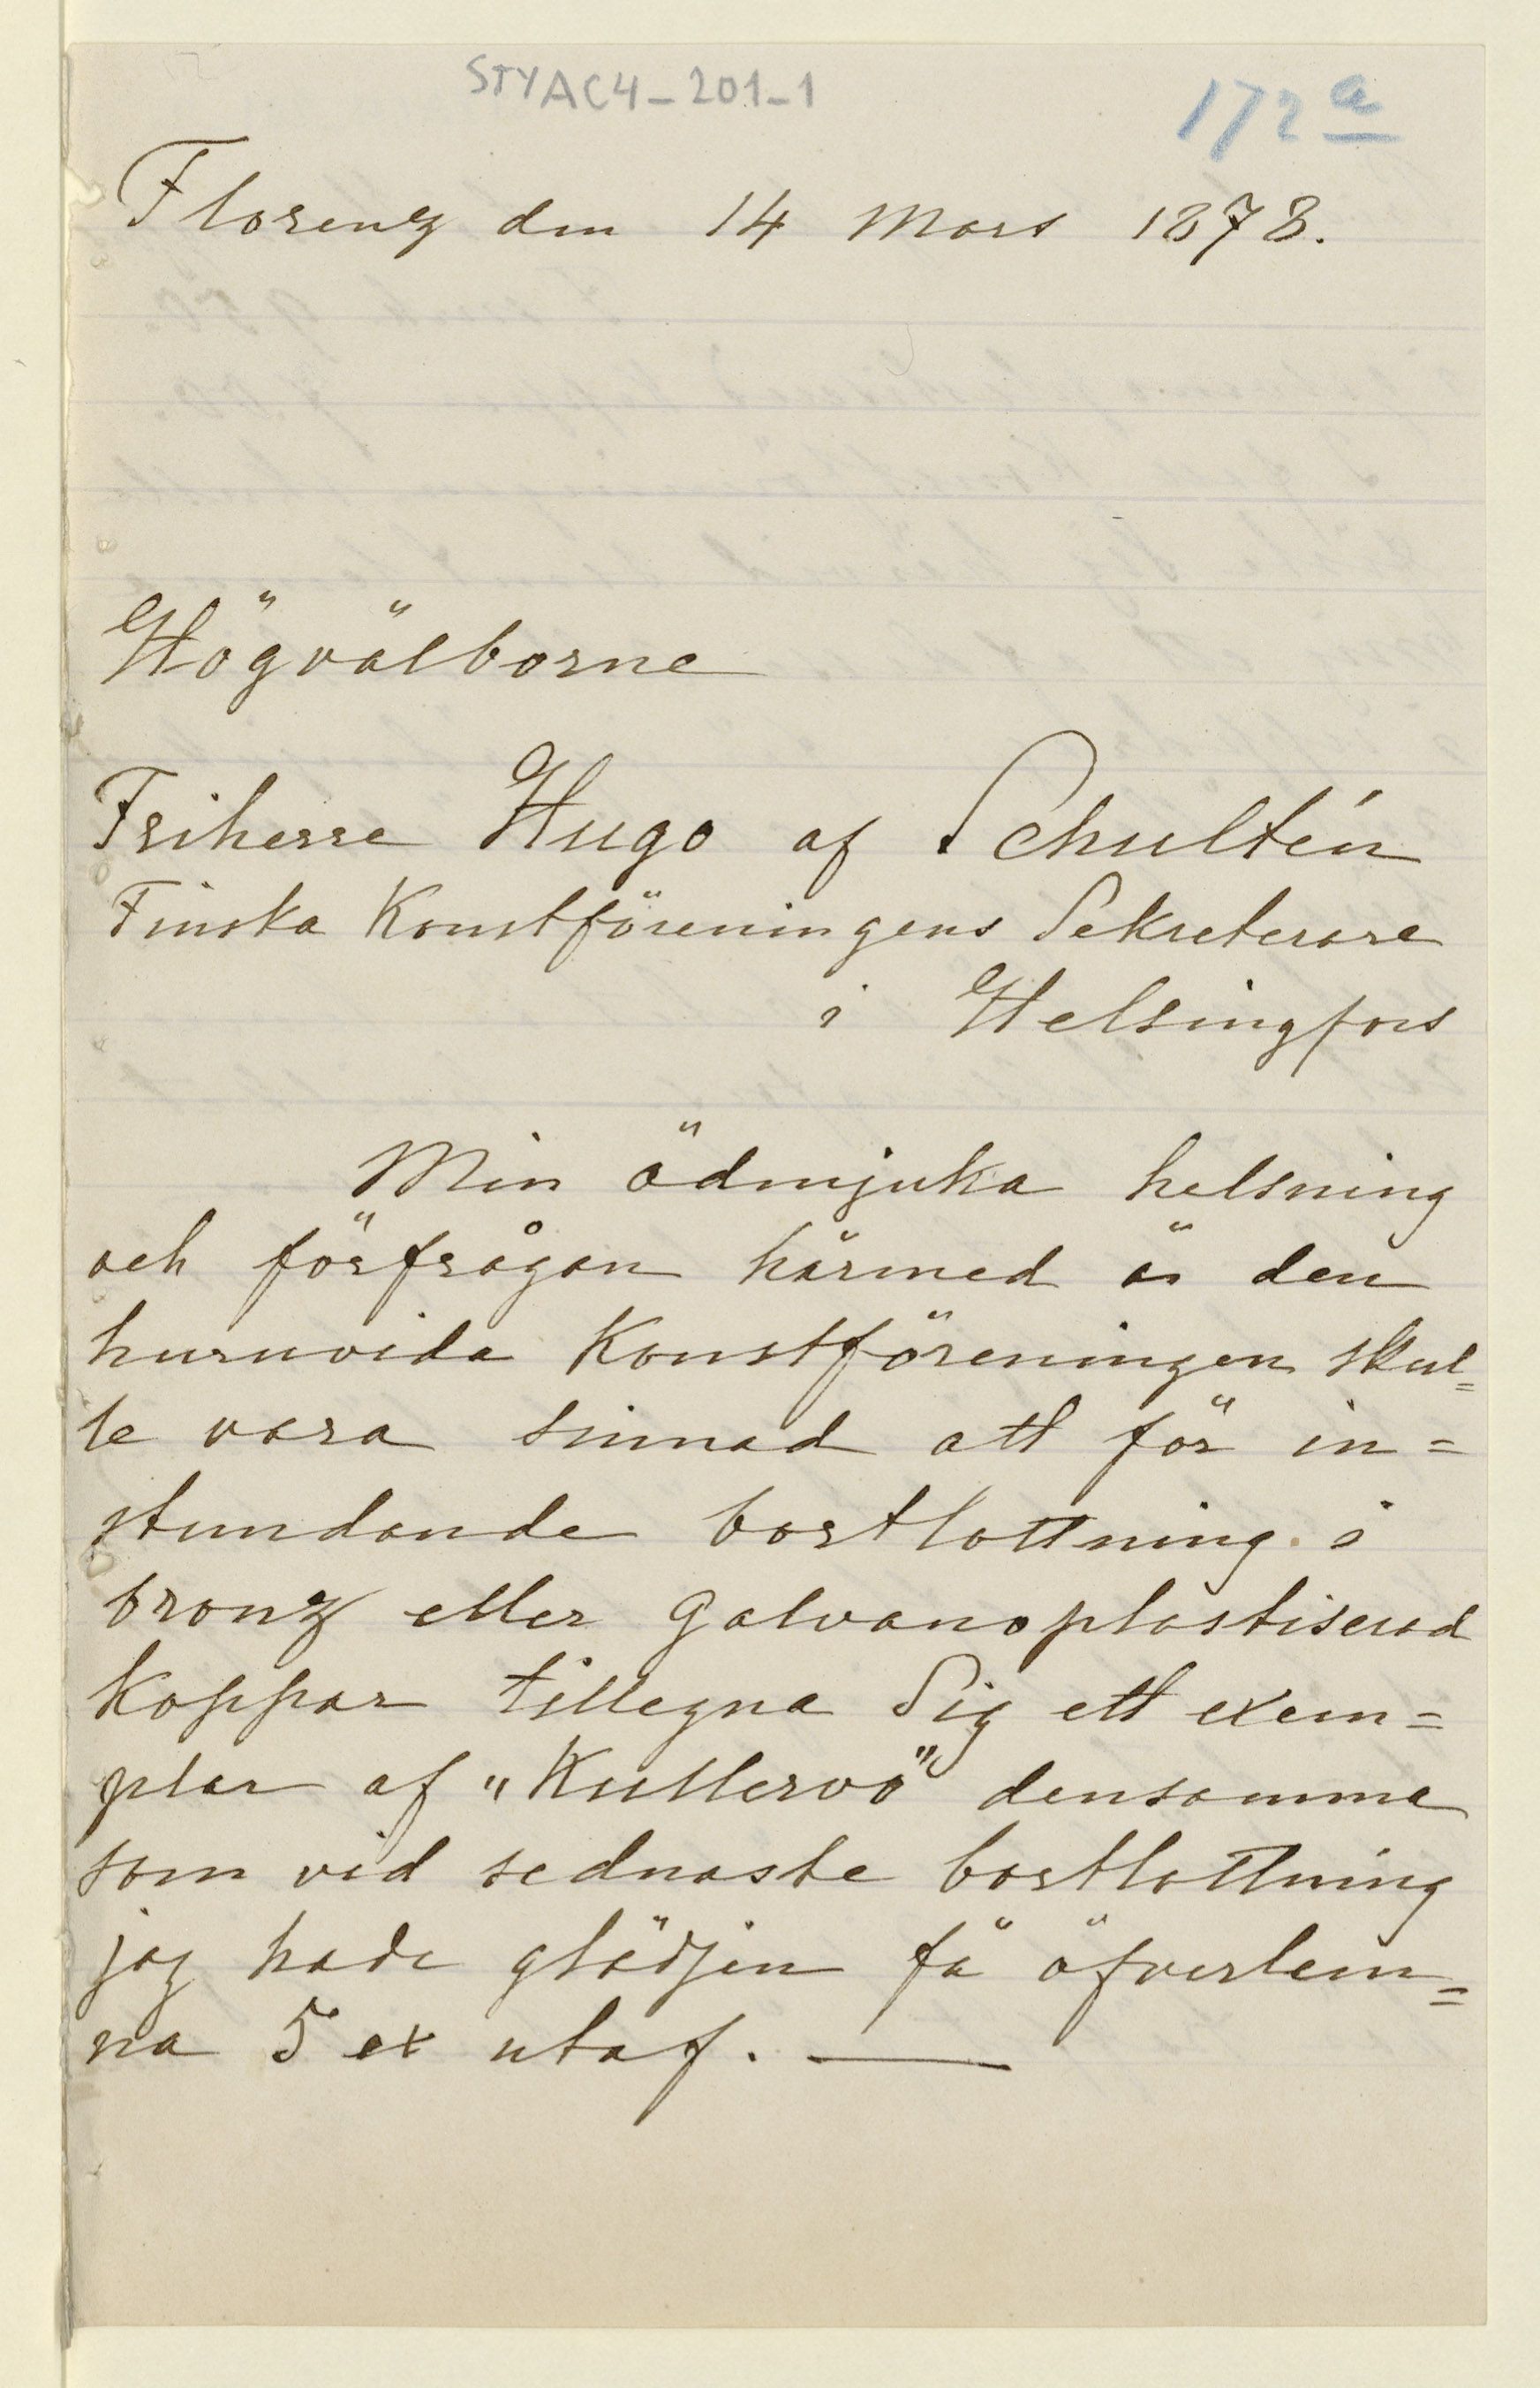 STYAC4-201-1
172 a
Florenz den 14 Mars 1878.
Högvälborne
Friherre Hugo af Schultén
Finska Konstföreningens Sekreterare
i Helsingfors
Min ödmjuka helsning
och förfrågan härmed är den
huruvida Konstföreningen skul=
le vara sinnad att för in=
stundande bortlottning i
bronz eller galvanoplastiserad
Koppar tillegna Sig ett exem=
plar af "Kullervo" densamma
som vid sednaste bortlottning
jag hade glädjen få öfverlem=
na 5 ex utaf. —